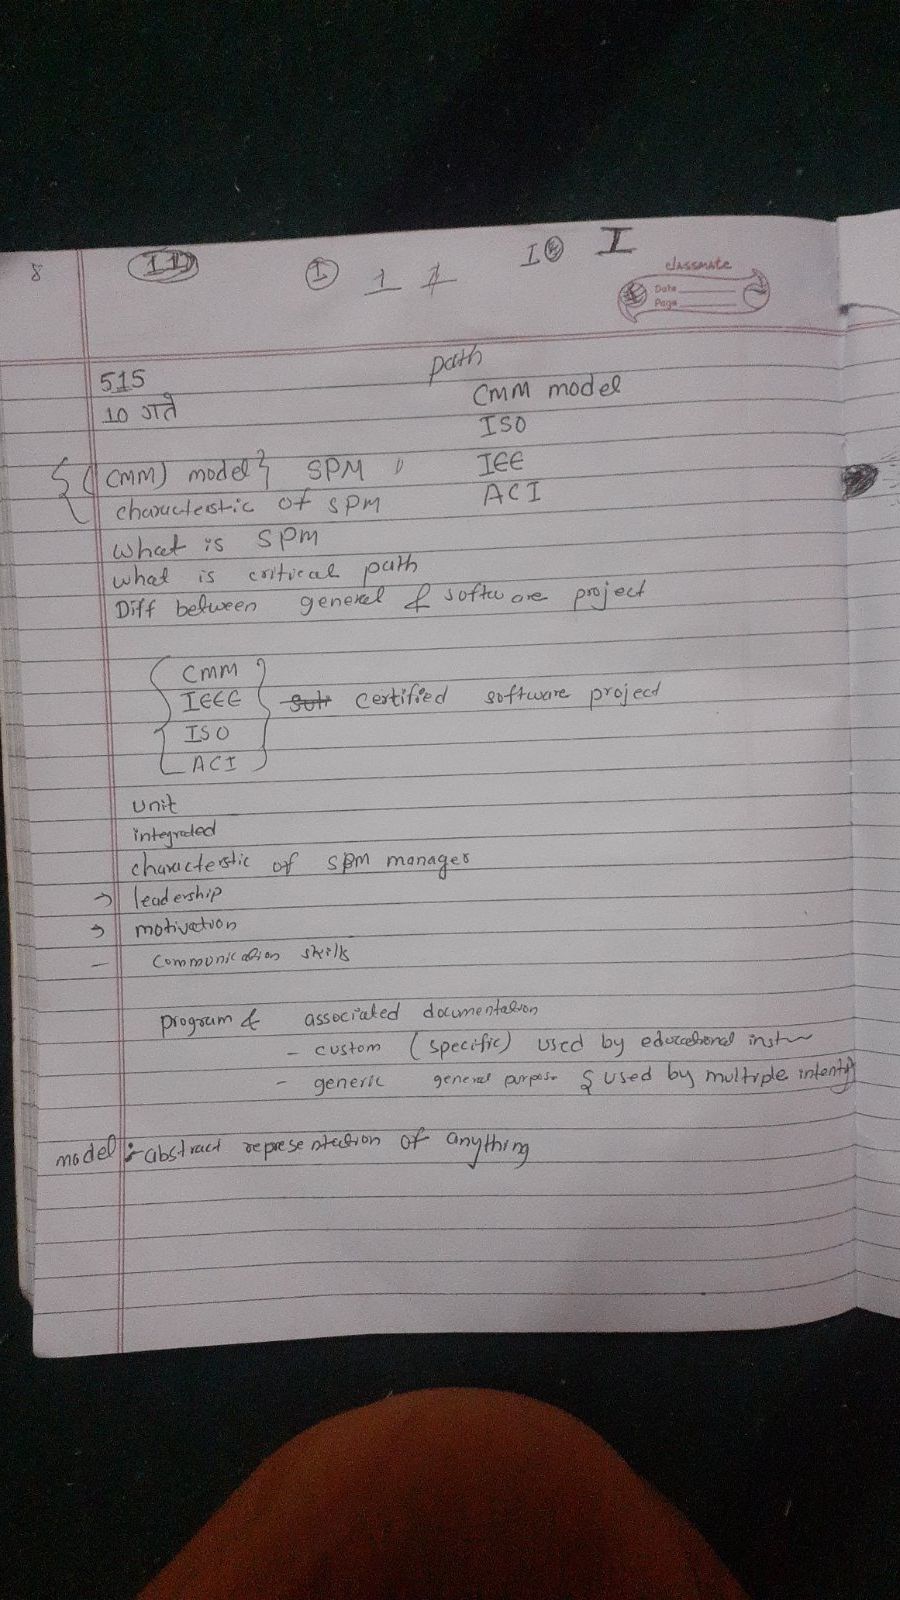 8
I 1 1 I I
classmate
Date
Page
path
515
10 गते
CMM model
ISO
{( CMM) model} SPM
IEE
characterstic of SPM
ACI
what is SPM
what is critical path
Diff between general & software project
CMM
IEEE
certified software project
ISO
ACI
unit
integrated
characterstic of SPM manager
→ leadership
→ motivation
- communication skills
program & associated documentation
- custom (specific) used by educational
- generic general purpose & used by multiple
model :- abstract representation of anything